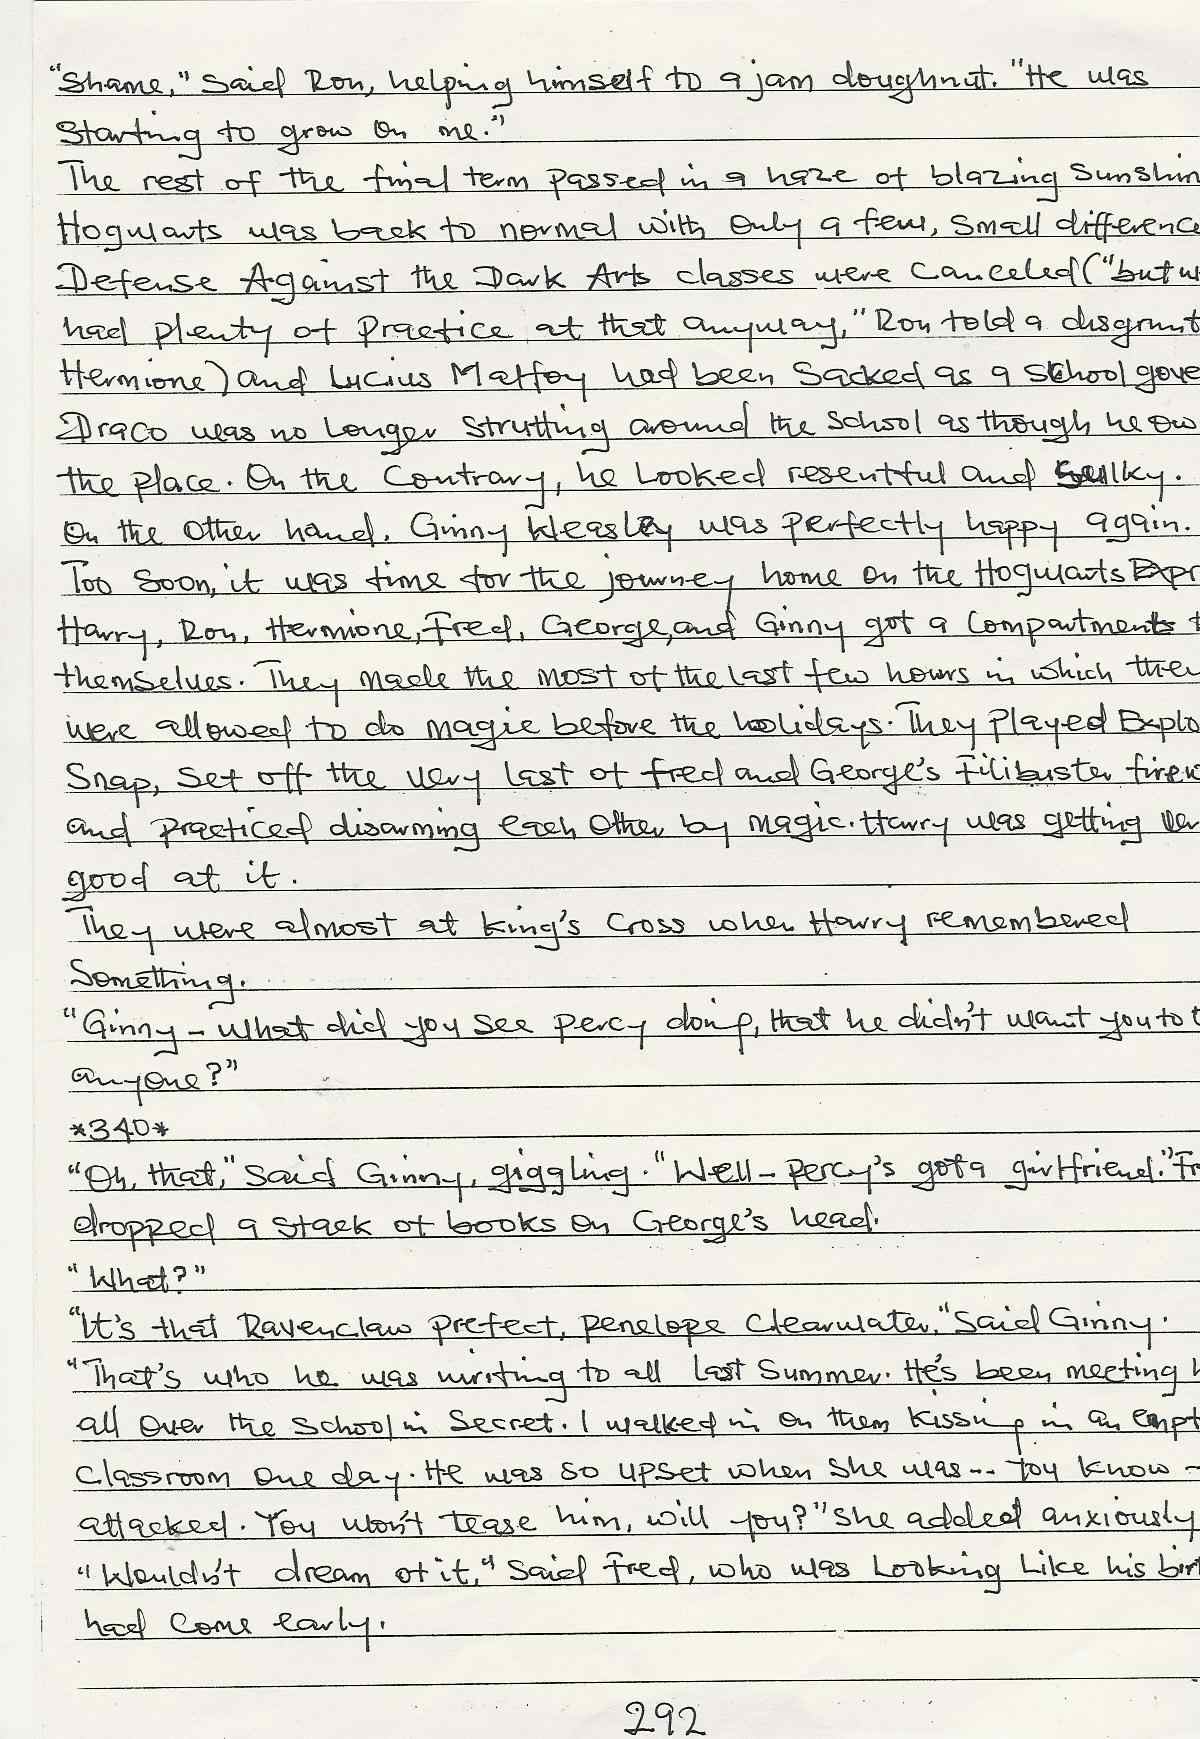 "Shame," Said Ron, helping himself to a jam doughnut. "He was
Starting to grow on me."
The rest of the final term passed in a haze of blazing Sunshin
Hogwarts was back to normal with Only a few, Small difference
Defense Against the Dark Arts classes were Canceled ("but w
had plenty of Practice at that anyway," Ron told a disgrunt
Hermione) and Lucius Malfoy had been Sacked as a School gove
Draco was no Longer Strutting around the School as though he ow
the place. On the Contrary, he Looked resentful and Sulky.
On the Other hand, Ginny Weasley was perfectly happy again.
Too Soon, it was time for the journey home on the Hogwarts Expr
Harry, Ron, Hermione, Fred, George, and Ginny got a Compartments t
themselves. They made the most of the last few hours in which they
were allowed to do magic before the holidays. They Played Explo
Snap, Set off the very last of Fred and George's Filibuster firew
and Practiced disarming each Other by magic. Harry was getting ver
good at it.
They were almost at King's Cross when Harry remembered
Something.
"Ginny - What did you See Percy doing, that he didn't want you to t
anyone?"
*340*
"Oh, that," Said Ginny, giggling. "Well - Percy's got a girlfriend." Fr
dropped a Stack of books on George's head.
"What?"
"It's that Ravenclaw Prefect, Penelope Clearwater," Said Ginny.
"That's who he was writing to all Last Summer. He's been meeting h
all Over the School in Secret. I walked in on them Kissing in an empt
Classroom One day. He was So upset when She was -- You Know -
attacked. You won't tease him, will you?" She added anxiously
"Wouldn't dream of it," Said Fred, who was Looking Like his birt
had Come early.
292